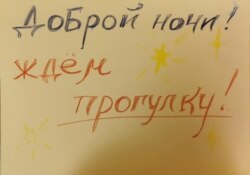 Доброй ночи!
ждём
пропулку!